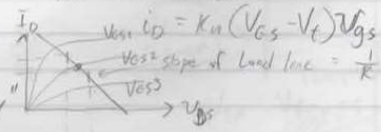 I_D
V_GS1 i_D = K_n (V_GS - V_t) v_gs
V_GS2 slope of Load line = 1/R
V_GS3
"
v_DS